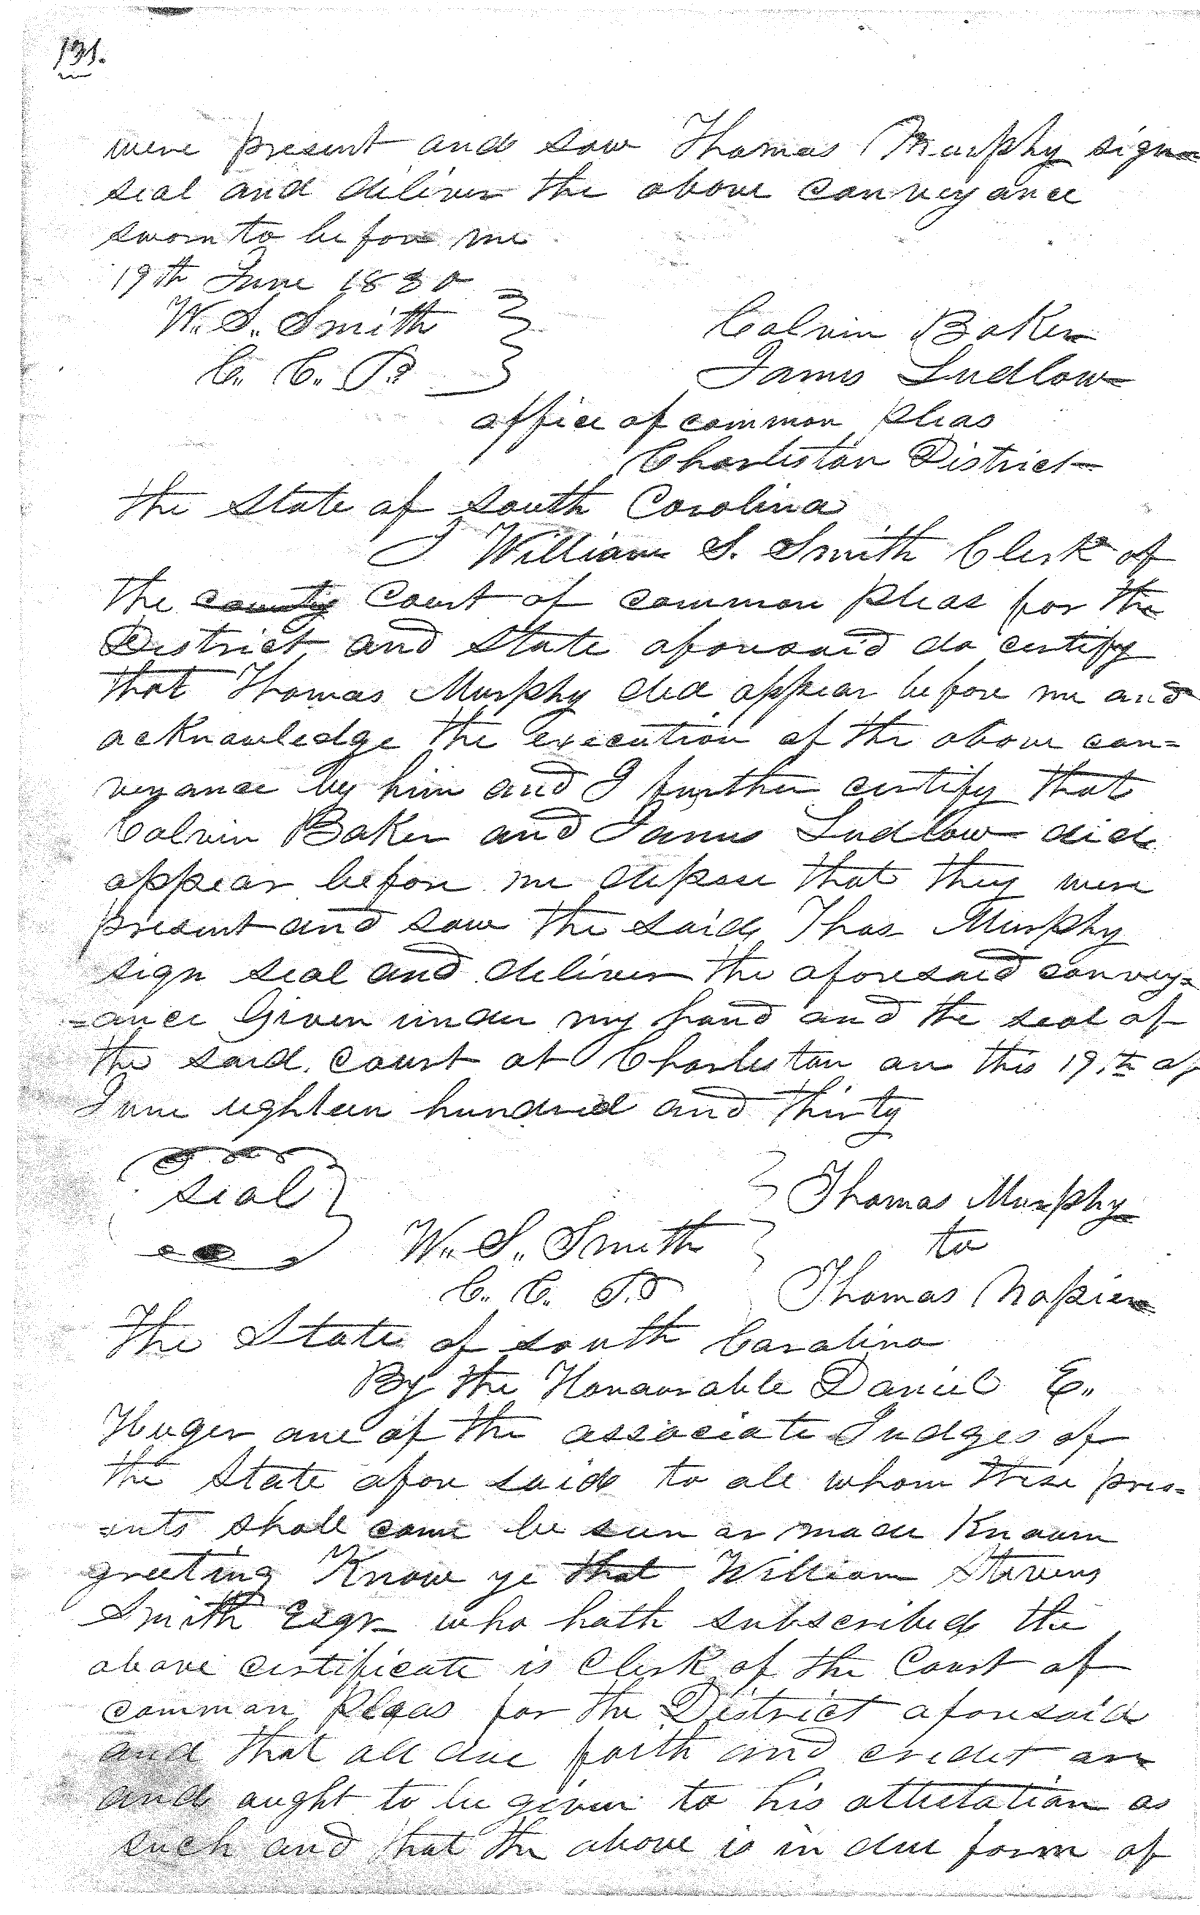 131.
were present and saw Thomas Murphy sign
seal and deliver the above conveyance
sworn to before me
19th June 1830
W. S. Smith
C. C. P.
Calvin Baker
James Ludlow
office of common pleas
Charleston District
the State of South Carolina
I William S. Smith Clerk of
the county Court of common pleas for the
District and State aforesaid do certify
that Thomas Murphy did appear before me and
acknowledge the execution of the above con=
veyance by him and I further certify that
Calvin Baker and James Ludlow did
appear before me depose that they were
present and saw the said Thos Murphy
sign seal and deliver the aforesaid convey=
=ance Given under my hand and the seal of
the said court at Charleston on this 19.th of
June eighteen hundred and thirty
seal
W. S. Smith
C. C. P.
Thomas Murphy
to
Thomas Napier
The State of South Carolina
By the Honourable Daniel E.
Huger one of the associate Judges of
the State afore said to all whom these pres=
=ents shall come be seen or made Known
greeting Know ye that William Stevens
Smith Esqr who hath subscribed the
above certificate is Clerk of the Court of
common Pleas for the District aforesaid
and that all due faith and credit are
and aught to be given to his attestation as
such and that the above is in due form of